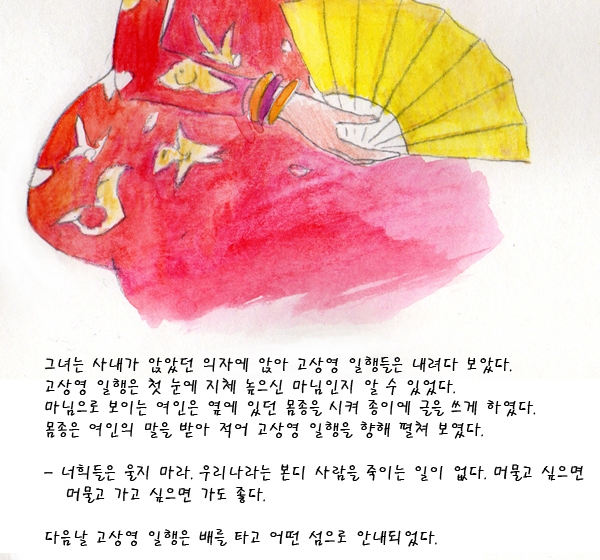 그녀는 사내가 앉았던 의자에 앉아 고상영 일행들은 내려다 보았다.
고상영 일행은 첫 눈에 지체 높으신 마님인지 알 수 있었다.
마님으로 보이는 여인은 옆에 있던 몸종을 시켜 종이에 글을 쓰게 하였다.
몸종은 여인의 말을 받아 적어 고상영 일행을 향해 펼쳐 보였다.
- 너희들은 울지 마라. 우리나라는 본디 사람을 죽이는 일이 없다. 머물고 싶으면
머물고 가고 싶으면 가도 좋다.
다음날 고상영 일행은 배를 타고 어떤 섬으로 안내되었다.